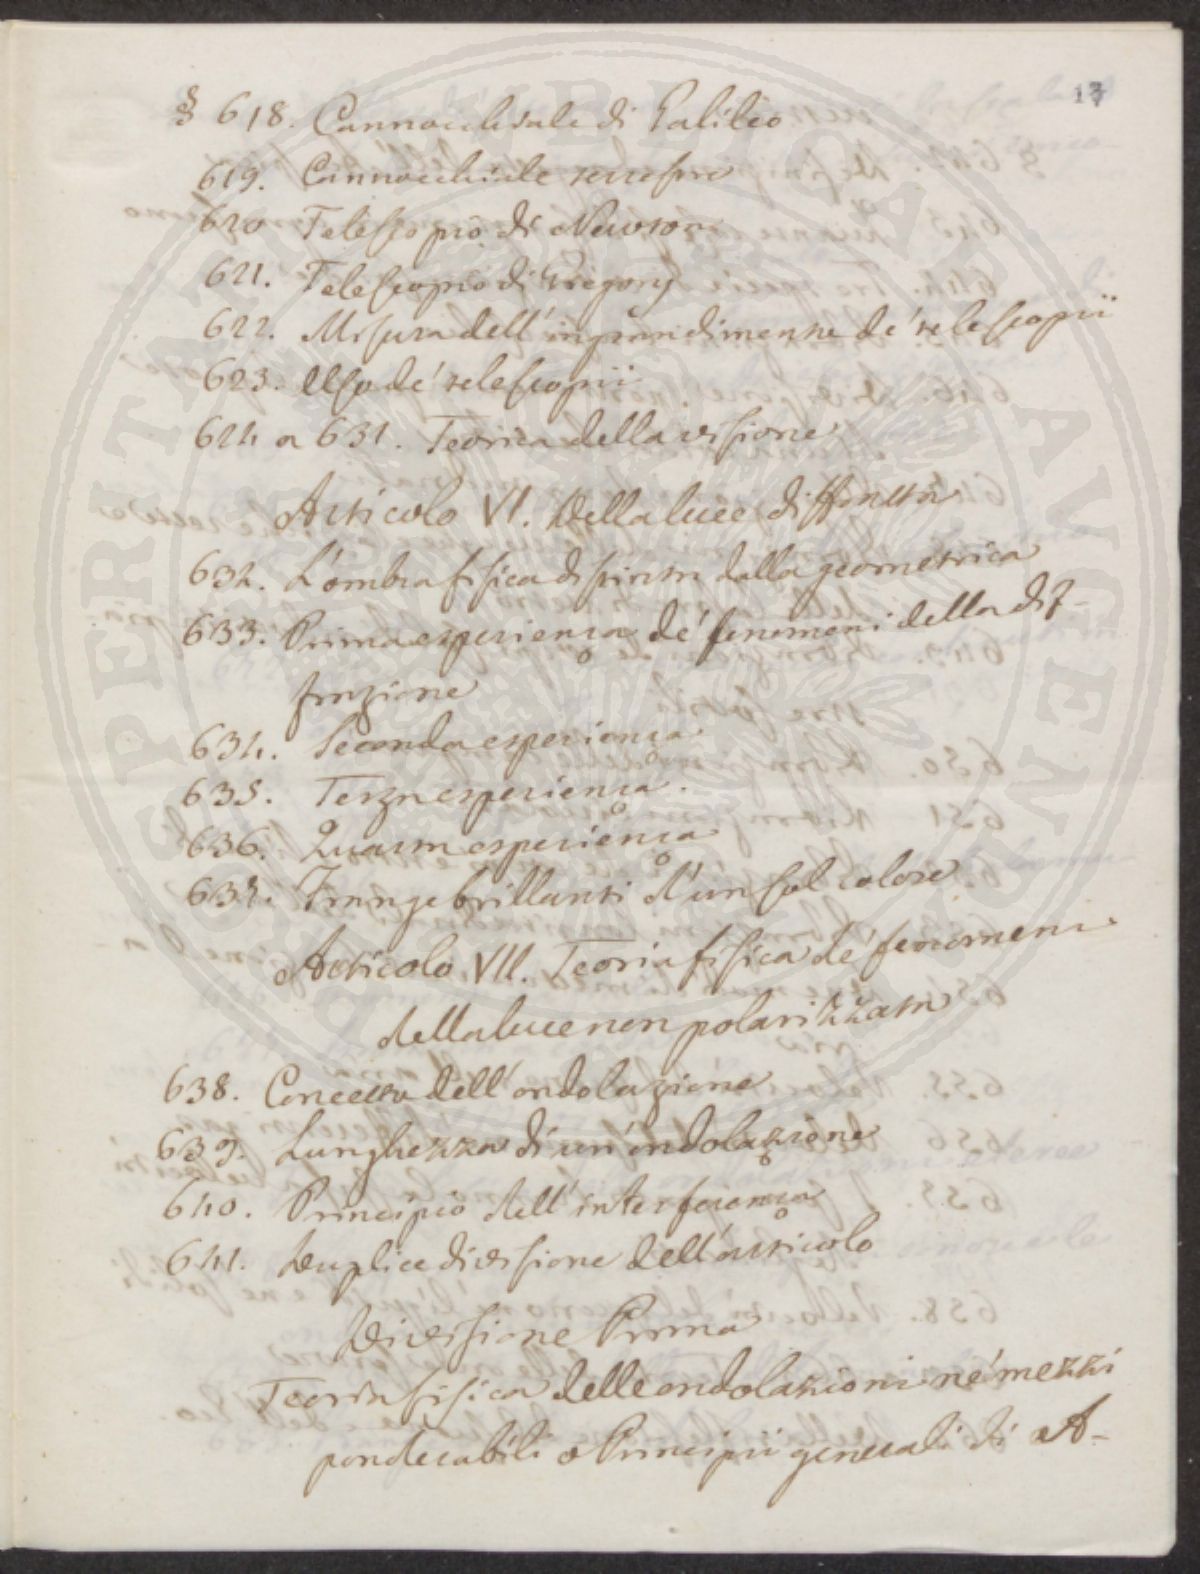 13
§ 618. Cannocchiale di Galileo
619. Cannocchiale terrestre
620 Telescopio di Newton
621. Telescopio di Gregory
622. Misura dell'ingrandimento de' telescopii
623. Uso de' telescopii
624 a 631. Teorica della visione
Articolo VI. Della luce diffratta
632. L'ombra fisica distinta dalla geometrica
633. Prima esperienza de' fenomeni della dif-
frazione
634. Seconda esperienza
635. Terza esperienza.
636. Quarta esperienza
637. Frange brillanti d'un sol colore
Articolo VII. Teoria fisica de' fenomeni
della luce non polarizzata
638. Concetto dell'ondolazione
639. Lunghezza di un'ondolazione
640. Principio dell'interferenza
641. Duplice divisione dell'articolo
Divisione Prima
Teoria fisica delle ondolazioni ne' mezzi
ponderabili o Principii generali di A-
PERITATI PUBLICAE AUGENDAE